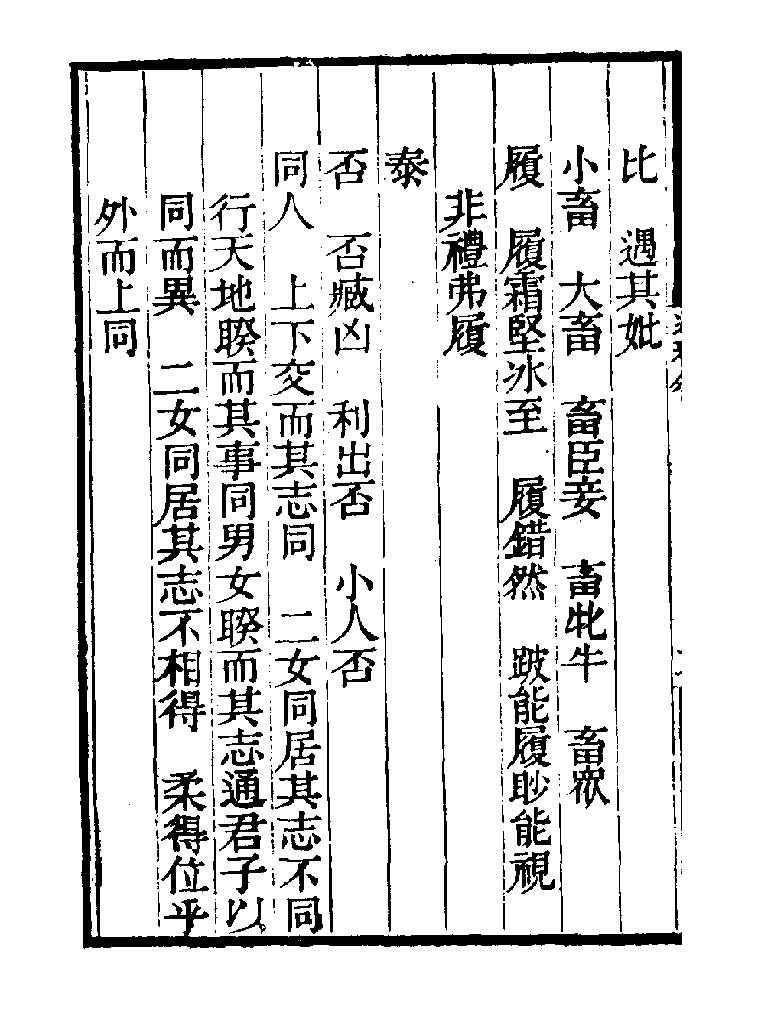 比　遇其妣
小畜　大畜　畜臣妾　畜牝牛　畜衆
履　履霜堅冰至　履錯然　跛能履眇能視
非禮弗履
泰
否　否臧凶　利出否　小人否
同人　上下交而其志同　二女同居其志不同
行天地睽而其事同男女睽而其志通君子以
同而異　二女同居其志不相得　柔得位乎
外而上同